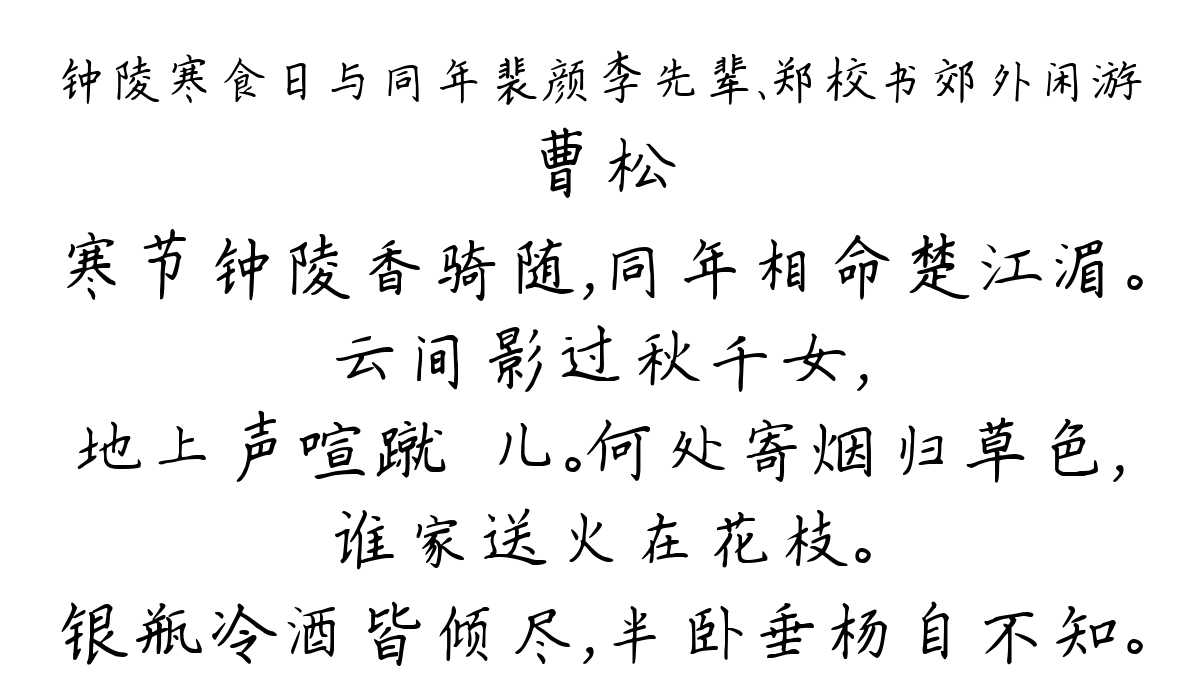 钟陵寒食日与同年裴颜李先辈、郑校书郊外闲游
曹松
寒节钟陵香骑随,同年相命楚江湄。
云间影过秋千女,
地上声喧蹴 儿。何处寄烟归草色,
谁家送火在花枝。
银瓶冷酒皆倾尽,半卧垂杨自不知。